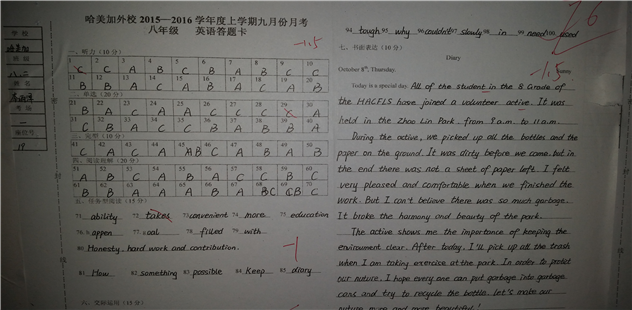 哈美加外校 2015—2016 学年度上学期九月份月考
八年级 英语答题卡
学校
班级
八二
姓名
19
-1.5
一、听力（10分）
1 2 3 4 5 6 7 8 9 10
C C A B C B A B C C
11 12 13 14 15 16 17 18 19 20
二、单选（20分）
21 22 23 24 25 26 27 28 29 30
B A C A A C C C A
31 32 33 34 35 36 37 38 39 40
C B A C C B A B B A
三、完型（10分）
41 42 43 44 45 46 47 48 49 50
四、阅读理解（20分）
51 52 53 54 55 56 57 58 59 60
A B C A B C A B C A
61 62 63 64 65 66 67 68 69 70
B B A A A B A BC CB C
五、任务型阅读（15分）
71. ability 72. takes 73. convenient 74. more 75. education
76. appen 77. oal 78. filled 79. with
80. Honesty, hard work and contribution.
-1
81. How 82. something 83. possible 84. Keep 85. diary
六、交际运用（15分）
94. tough 95. why 96. couldn't 97. slowly 98. in 99. need 100. used
七、书面表达（10分）
Diary
-1.5
October 8th, Thursday. Sunny
Today is a special day. All of the student in the 8 Grade of
the HACFLS have joined a volunteer active. It was
held in the Zhao Lin Park from 8 a.m. to 11 a.m.
During the active, we picked up all the bottles and the
paper on the ground. It was dirty before we came. but in
the end there was not a sheet of paper left. I felt
very pleased and comfortable when we finished the
work. But I can't believe there was so much garbage.
It broke the harmony and beauty of the park.
The active shows me the importance of keeping the
enviroument clear. After today, I'll pick up all the trash
when I am taking exercise at the park. In order to protect
our nature. I hope every one can put garbage into garbage
cans and try to recycle the bottle. Let's make our
nature more and more beautiful!